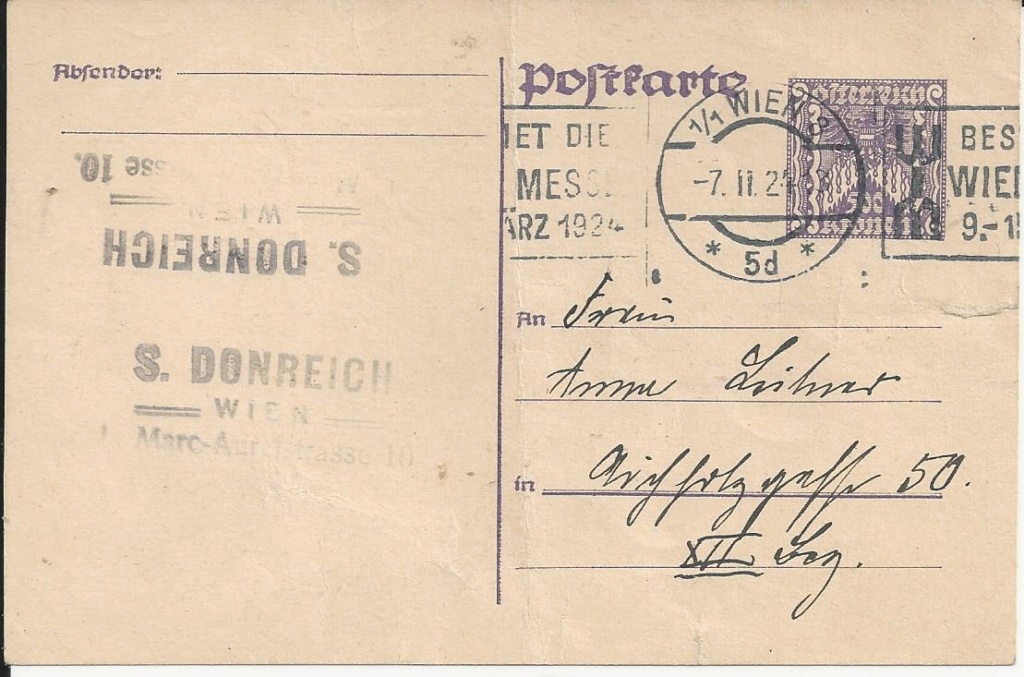 Absender:
Postkarte
Österreich
500
Kronen
1/1 WIEN 8
-7. II. 24
* 5d *
ET DIE
MESSE
ÄRZ 1924
BES
WIE
9.-1
asse 10.
WIEN
S. DONREICH
S. DONREICH
WIEN
I. Marc-Aurelstrasse 10
An Frau
Anna Leitner
in Aichholzgasse 50.
XII. Bez.